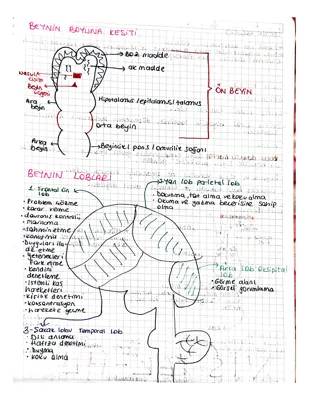 BEYNİN BOYUNA KESİTİ
Boz madde
ak madde
ÖN BEYİN
Ara beyin
Hipotalamus/epitalamus/talamus
Orta beyin
Arka Beyin
Beyincik / pons / omurilik soğanı
BEYNİN LOBLARI
1. Frontal ön lob
• Problem çözme
• Karar verme
• davranış kontrolü
2. Yan lob parietal lob
• Dokunma, tat alma ve
• Okuma ve yazma becerisine sahip olma
Arka lob Oksipital lob
• Görme alanı
• Görsel yorumlama
• Yetenekleri
Fark etme
• Kendini denetleme
• İstemli kas hareketleri
• Konsantrasyon
• Harekete geçme
3- Şakak lobu Temporal lob
• Dil anlama
• Hafıza denetimi
• Duyma
• Koku alma